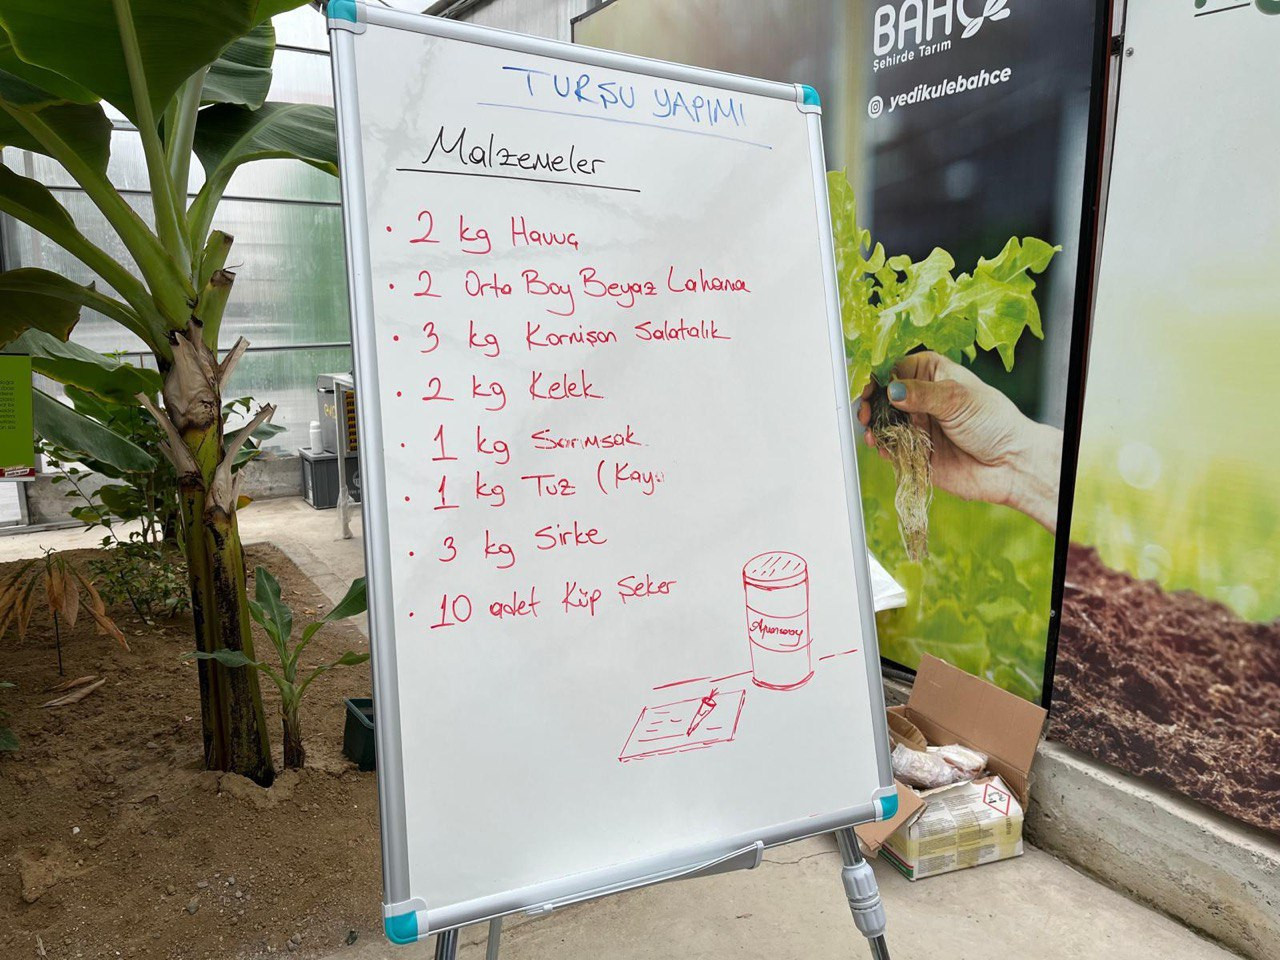 BAHÇ
Şehirde Tarım
yedikulebahce
TURŞU YAPIMI
Malzemeler
• 2 kg Havuç
• 2 Orta Boy Beyaz Lahana
• 3 kg Kornişon Salatalık
• 2 kg Kelek
• 1 kg Sarımsak
• 1 kg Tuz (Kaya
• 3 kg Sirke
• 10 adet Küp Şeker